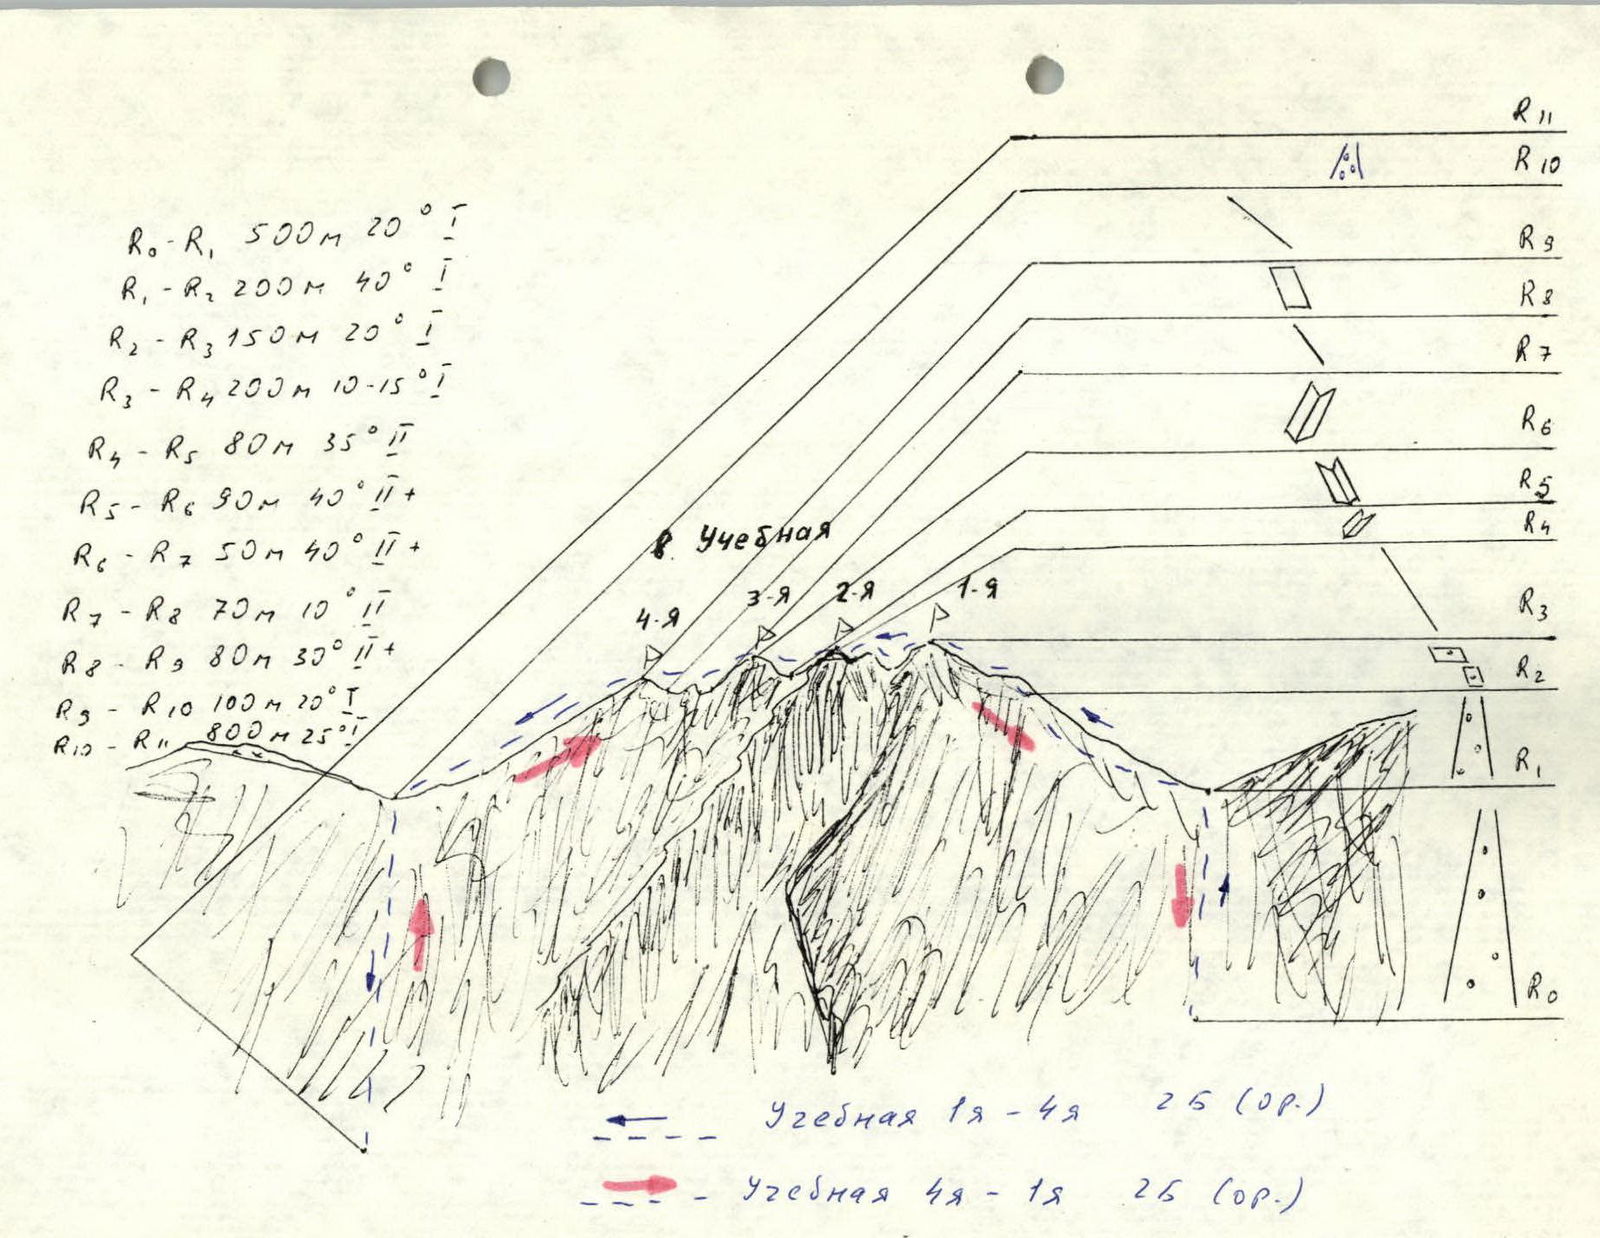 R₀ - R₁ 500м 20° I
R₁ - R₂ 200м 40° I
R₂ - R₃ 150м 20° I
R₃ - R₄ 200м 10-15° I
R₄ - R₅ 80м 35° II
R₅ - R₆ 90м 40° II+
R₆ - R₇ 50м 40° II+
R₇ - R₈ 70м 10° II
R₈ - R₉ 80м 30° II+
R₉ - R₁₀ 100м 20° I
R₁₀ - R₁₁ 800м 25° I
R₁₁
R₁₀
R₉
R₈
R₇
R₆
R₅
R₄
R₃
R₂
R₁
R₀
в. Учебная
4-я 3-я 2-я 1-я
Учебная 1я - 4я 2Б (ор.)
Учебная 4я - 1я 2Б (ор.)